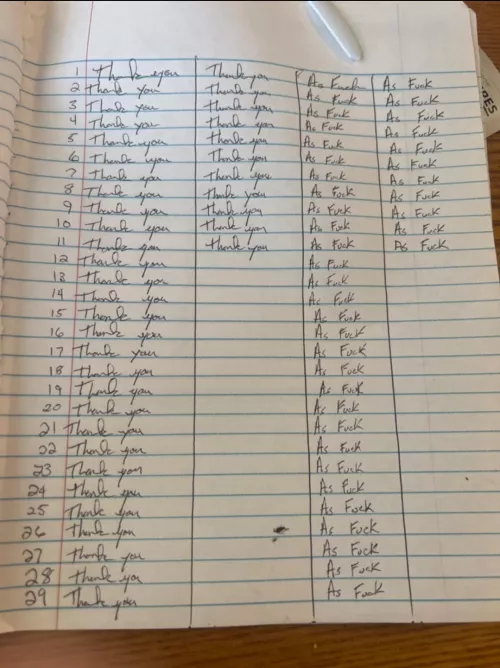 1 Thank you Thank you As Fuck As Fuck
2 Thank you Thank you As Fuck As Fuck
3 Thank you Thank you As Fuck As Fuck
4 Thank you Thank you As Fuck As Fuck
5 Thank you Thank you As Fuck As Fuck
6 Thank you Thank you As Fuck As Fuck
7 Thank you Thank you As Fuck As Fuck
8 Thank you Thank you As Fuck As Fuck
9 Thank you Thank you As Fuck As Fuck
10 Thank you Thank you As Fuck As Fuck
11 Thank you Thank you As Fuck As Fuck
12 Thank you As Fuck
13 Thank you As Fuck
14 Thank you As Fuck
15 Thank you As Fuck
16 Thank you As Fuck
17 Thank you As Fuck
18 Thank you As Fuck
19 Thank you As Fuck
20 Thank you As Fuck
21 Thank you As Fuck
22 Thank you As Fuck
23 Thank you As Fuck
24 Thank you As Fuck
25 Thank you As Fuck
26 Thank you As Fuck
27 Thank you As Fuck
28 Thank you As Fuck
29 Thank you As Fuck